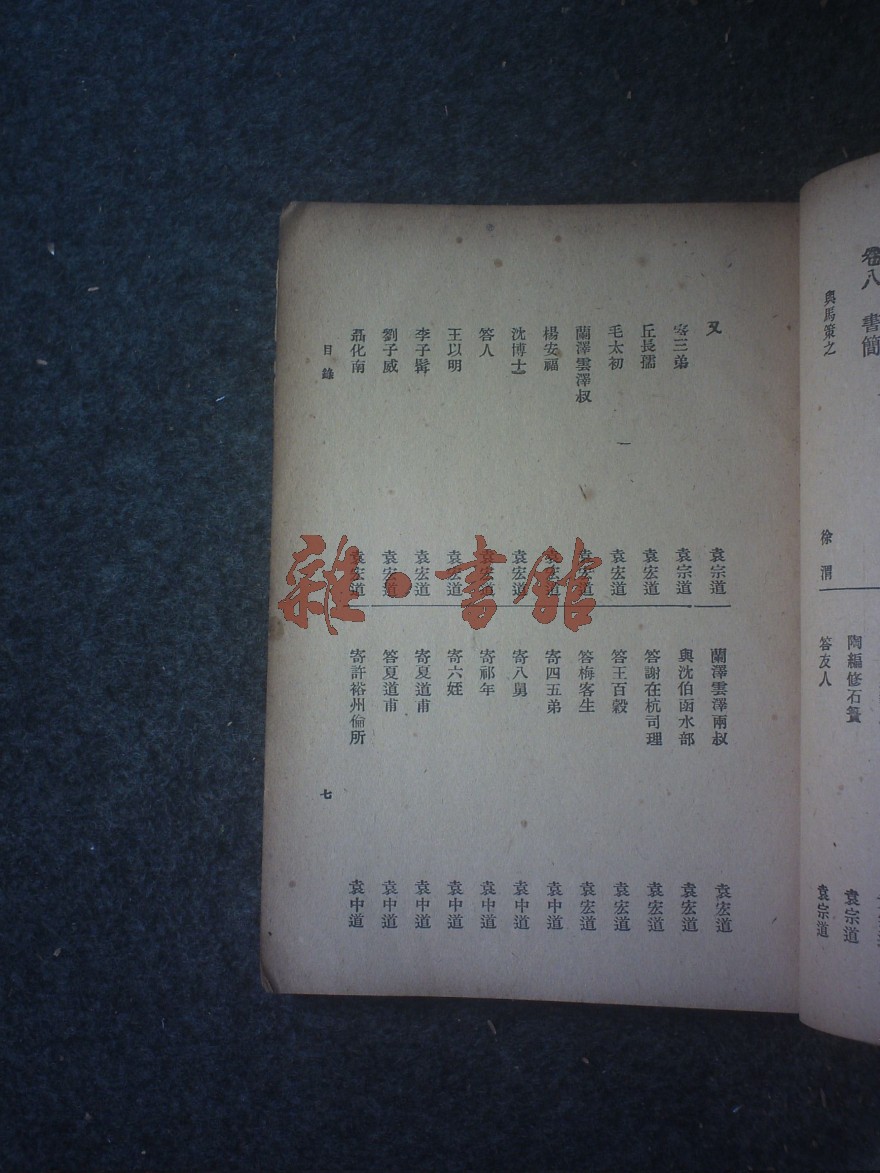 卷八 書簡
與馬策之 徐渭
陶編修石簣 袁宗道
答友人 袁宗道
又 袁宗道
寄三弟 袁宗道
丘長孺 袁宏道
毛太初 袁宏道
蘭澤雲澤叔 袁宏道
楊安福 袁宏道
沈博士 袁宏道
答人 袁宏道
王以明 袁宏道
李子髯 袁宏道
劉子威 袁宏道
聶化南 袁宏道
蘭澤雲澤兩叔 袁宏道
與沈伯函水部 袁宏道
答謝在杭司理 袁宏道
答王百穀 袁宏道
答梅客生 袁宏道
寄四五弟 袁中道
寄八舅 袁中道
寄祁年 袁中道
寄六姪 袁中道
寄夏道甫 袁中道
答夏道甫 袁中道
寄許裕州倫所 袁中道
目錄
七
雜·書館